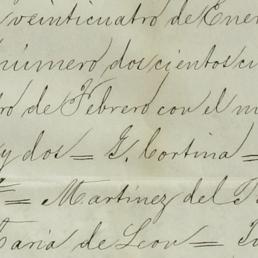 veinticuatro de Ener
número dos cientos ci
ro de Febrero con el m
y dos = G. Cortina =
= Martínez del
aria de Leon =